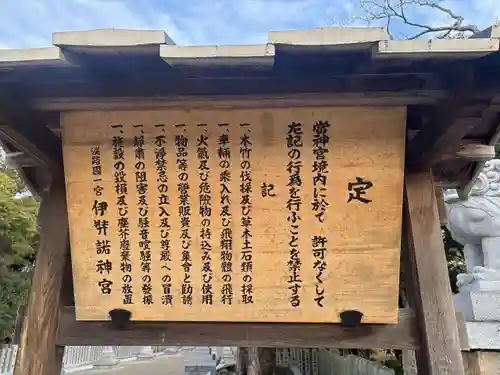 定
當神宮境内に於て 許可なくして
左記の行為を行ふことを禁止する
記
一、木竹の伐採及び草木土石類の採取
一、車輛の乗入れ及び飛翔物体の飛行
一、火氣及び危険物の持込み及び使用
一、物品等の營業販賣及び集會と勧誘
一、不浄禁忌の行為及び尊嚴への冒瀆
一、静肅の阻害及び騒音喧騒等の発振
一、施設の毀損及び塵芥廃棄物の放置
淡路國一宮 伊弉諾神宮